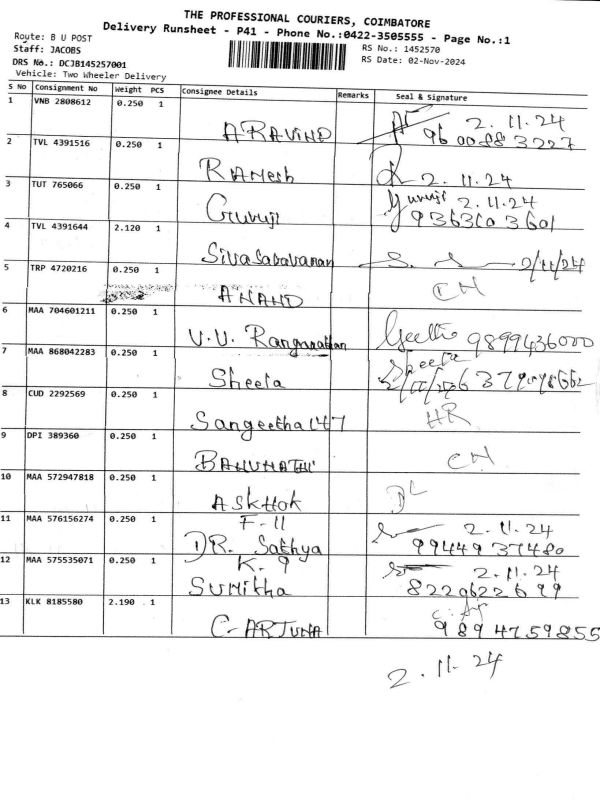 THE PROFESSIONAL COURIERS, COIMBATORE
Delivery Runsheet - P41 - Phone No.:0422-3505555 - Page No.:1
Route: B U POST
Staff: JACOBS
DRS No.: DCJB145257001
Vehicle: Two Wheeler Delivery
RS No.: 1452570
RS Date: 02-Nov-2024
S No Consignment No Weight PCS Consignee Details Remarks Seal & Signature
1 VNB 2808612 0.250 1
ARAVIND 2.11.24
9600883227
2 TVL 4391516 0.250 1
RAMesh 2.11.24
3 TUT 765066 0.250 1
Guruji Guruji 2.11.24
9363103601
4 TVL 4391644 2.120 1
Sivasaravanan 2/11/24
5 TRP 4720216 0.250 1
ANAND CH
6 MAA 704601211 0.250 1
V.V. Ranganathan 9899436000
7 MAA 868042283 0.250 1
Sheeta Sheeta
8 CUD 2292569 0.250 1
Sangeetha 147 HR
9 DPI 389360 0.250 1
BANUMATHI CH
10 MAA 572947818 0.250 1
ASKHOK DL
11 MAA 576156274 0.250 1
F-11
DR. Sathya 2.11.24
9944937480
12 MAA 575535071 0.250 1
K.9
SUMitha 2.11.24
8220622699
13 KLK 8185580 2.190 1
C-ARJUNA 9894759855
2.11.24